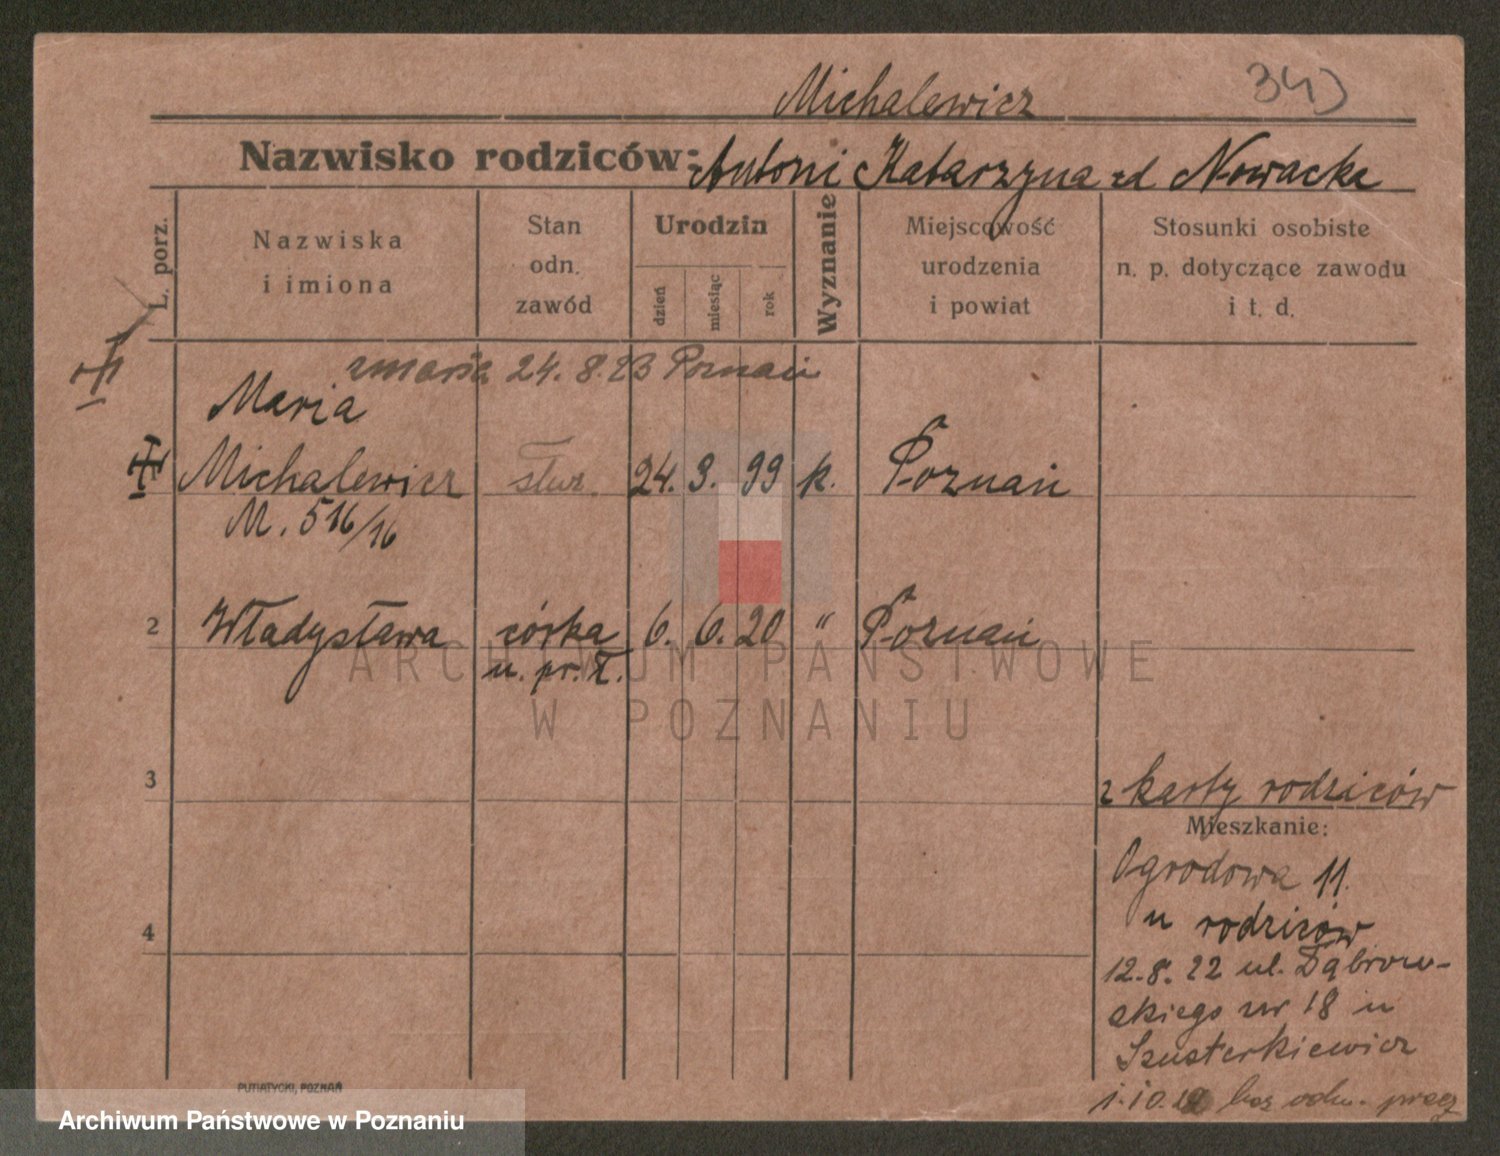 Michalewicz 343
Nazwisko rodziców: Antoni Katarzyna zd Nowacka
L. porz.
Nazwiska
i imiona
Stan
odn.
zawód
Urodzin
dzień
miesiąc
rok
Wyznanie
Miejscowość
urodzenia
i powiat
Stosunki osobiste
n. p. dotyczące zawodu
i t. d.
zmarła 24. 8. 23 Poznań
Maria
Michalewicz służ. 24. 3. 99 k. Poznań
M. 516/16
2 Władysława córka 6. 6. 20 " Poznań
n. pr. Ł.
ARCHIWUM PAŃSTWOWE
W POZNANIU
3
z karty rodziców
Mieszkanie:
Ogrodowa 11.
u rodziców
4
12. 8. 22 ul. Dąbrow-
skiego nr 18 u
Szusterkiewicz
1. 10. bez odm. pracy
PUTIATYCKI, POZNAŃ
Archiwum Państwowe w Poznaniu